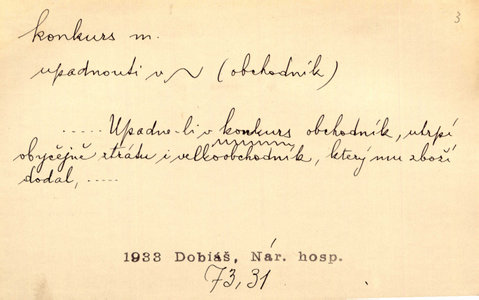 3
konkurs m.
upadnouti v ~ (obchodník)
..... Upadne-li v konkurs obchodník, utrpí
obyčejně ztrátu i velkoobchodník, který mu zboží
dodal, .....
1933 Dobiáš, Nár. hosp.
73, 31